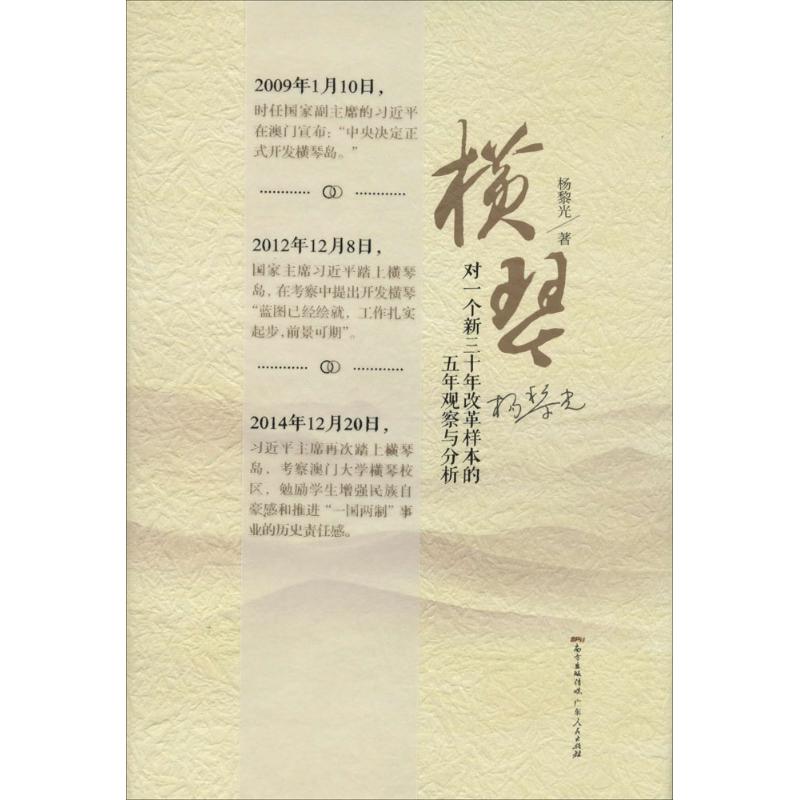 2009年1月10日，
时任国家副主席的习近平
在澳门宣布：“中央决定正
式开发横琴岛。”
2012年12月8日，
国家主席习近平踏上横琴
岛，在考察中提出开发横琴
“蓝图已经绘就，工作扎实
起步，前景可期”。
2014年12月20日，
习近平主席再次踏上横琴
岛，考察澳门大学横琴校
区，勉励学生增强民族自
豪感和推进“一国两制”事
业的历史责任感。
横琴
杨黎光/著
对一个新三十年改革样本的
五年观察与分析
杨黎光
南方出版传媒 广东人民出版社